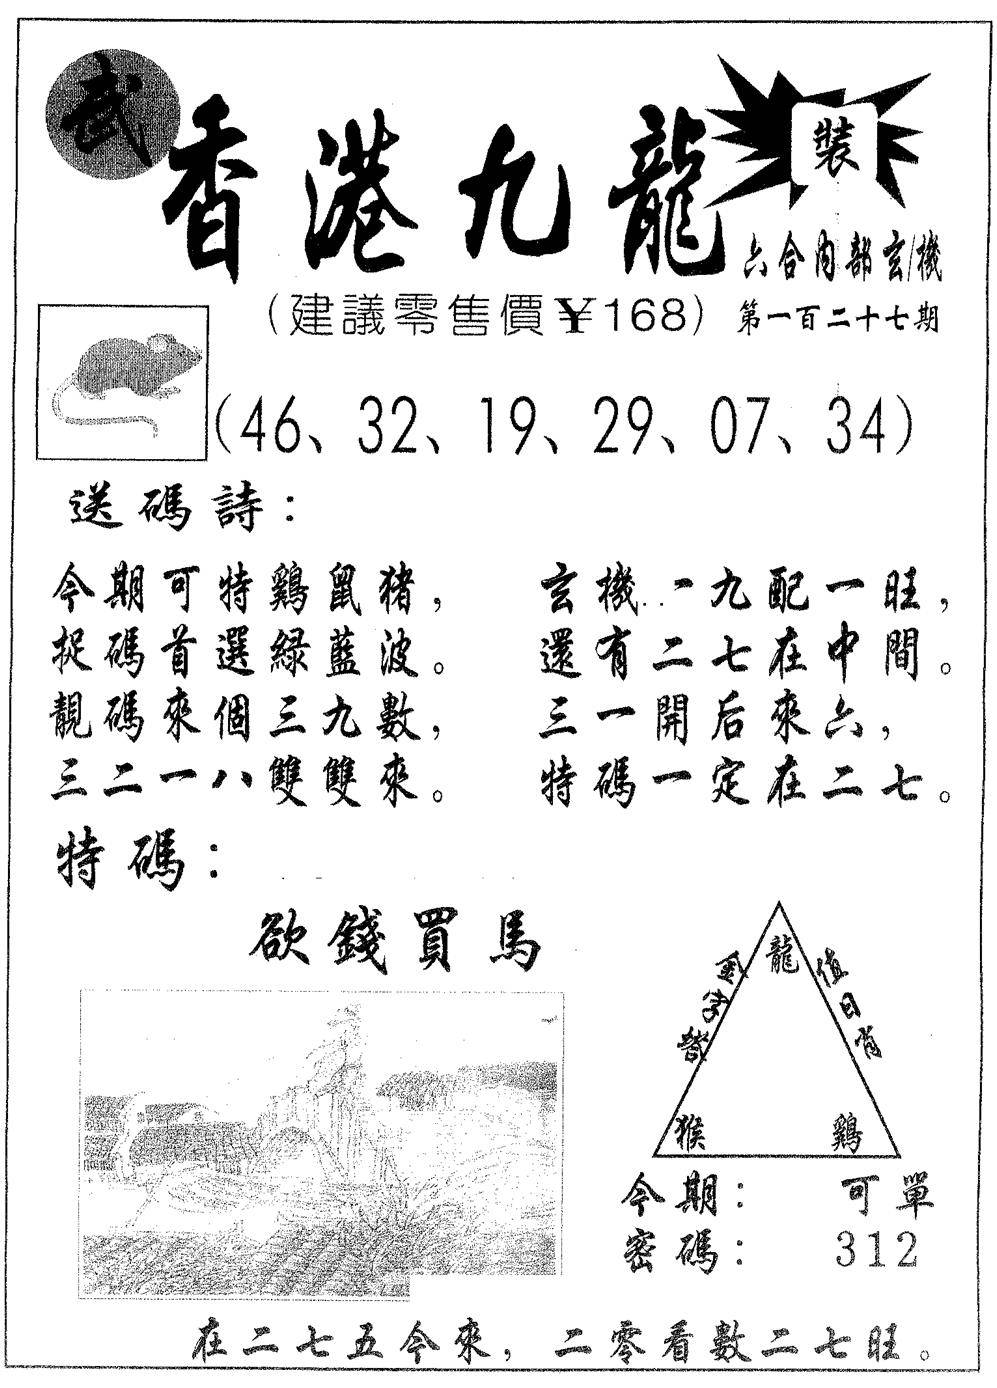 武
香港九龍
裝
六合内部玄機
（建議零售價¥168）
第一百二十七期
（46、32、19、29、07、34）
送碼詩：
今期可特鷄鼠猪，
捉碼首選緑藍波。
靚碼來個三九數，
三二一八雙雙來。
玄機一九配一旺，
還有二七在中間。
三一開后來六，
特碼一定在二七。
特碼：
欲錢買馬
龍
金字塔
值日肖
猴
鷄
今期：可單
密碼：312
在二七五今來，二零看數二七旺。